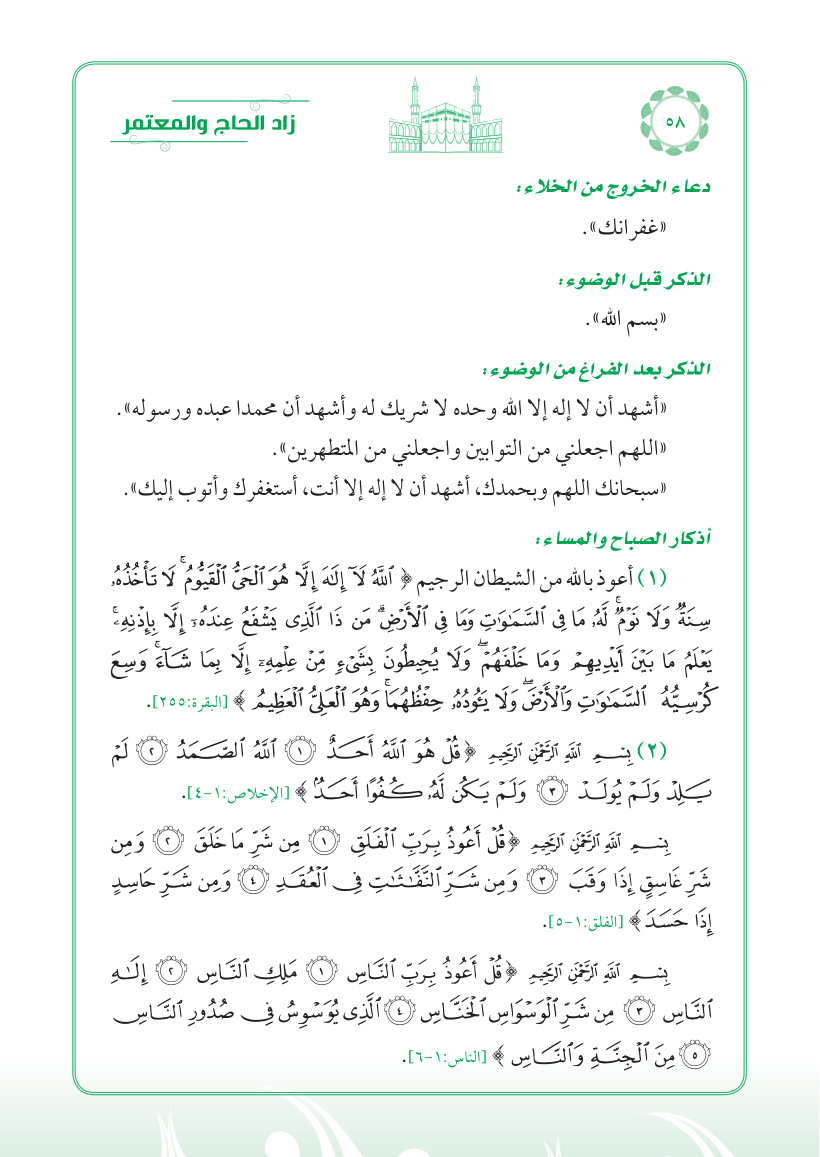 ٥٨
زاد الحاج والمعتمر
دعاء الخروج من الخلاء:
«غفرانك».
الذكر قبل الوضوء:
«بسم الله».
الذكر بعد الفراغ من الوضوء:
«أشهد أن لا إله إلا الله وحده لا شريك له وأشهد أن محمدا عبده ورسوله».
«اللهم اجعلني من التوابين واجعلني من المتطهرين».
«سبحانك اللهم وبحمدك، أشهد أن لا إله إلا أنت، أستغفرك وأتوب إليك».
أذكار الصباح والمساء:
(١) أعوذ بالله من الشيطان الرجيم ﴿ ٱللَّهُ لَآ إِلَٰهَ إِلَّا هُوَ ٱلْحَىُّ ٱلْقَيُّومُ ۚ لَا تَأْخُذُهُۥ
سِنَةٌ وَلَا نَوْمٌ ۚ لَّهُۥ مَا فِى ٱلسَّمَٰوَٰتِ وَمَا فِى ٱلْأَرْضِ ۗ مَن ذَا ٱلَّذِى يَشْفَعُ عِندَهُۥٓ إِلَّا بِإِذْنِهِۦ ۚ
يَعْلَمُ مَا بَيْنَ أَيْدِيهِمْ وَمَا خَلْفَهُمْ ۖ وَلَا يُحِيطُونَ بِشَىْءٍ مِّنْ عِلْمِهِۦٓ إِلَّا بِمَا شَآءَ ۚ وَسِعَ
كُرْسِيُّهُ ٱلسَّمَٰوَٰتِ وَٱلْأَرْضَ ۖ وَلَا يَـُٔودُهُۥ حِفْظُهُمَا ۚ وَهُوَ ٱلْعَلِىُّ ٱلْعَظِيمُ ﴾ [البقرة:٢٥٥].
(٢) بِسْمِ ٱللَّهِ ٱلرَّحْمَٰنِ ٱلرَّحِيمِ ﴿ قُلْ هُوَ ٱللَّهُ أَحَدٌ ١ ٱللَّهُ ٱلصَّمَدُ ٢ لَمْ
يَلِدْ وَلَمْ يُولَدْ ٣ وَلَمْ يَكُن لَّهُۥ كُفُوًا أَحَدٌۢ ﴾ [الإخلاص:١-٤].
بِسْمِ ٱللَّهِ ٱلرَّحْمَٰنِ ٱلرَّحِيمِ ﴿ قُلْ أَعُوذُ بِرَبِّ ٱلْفَلَقِ ١ مِن شَرِّ مَا خَلَقَ ٢ وَمِن
شَرِّ غَاسِقٍ إِذَا وَقَبَ ٣ وَمِن شَرِّ ٱلنَّفَّٰثَٰتِ فِى ٱلْعُقَدِ ٤ وَمِن شَرِّ حَاسِدٍ
إِذَا حَسَدَ ﴾ [الفلق:١-٥].
بِسْمِ ٱللَّهِ ٱلرَّحْمَٰنِ ٱلرَّحِيمِ ﴿ قُلْ أَعُوذُ بِرَبِّ ٱلنَّاسِ ١ مَلِكِ ٱلنَّاسِ ٢ إِلَٰهِ
ٱلنَّاسِ ٣ مِن شَرِّ ٱلْوَسْوَاسِ ٱلْخَنَّاسِ ٤ ٱلَّذِى يُوَسْوِسُ فِى صُدُورِ ٱلنَّاسِ
٥ مِنَ ٱلْجِنَّةِ وَٱلنَّاسِ ﴾ [الناس:١-٦].